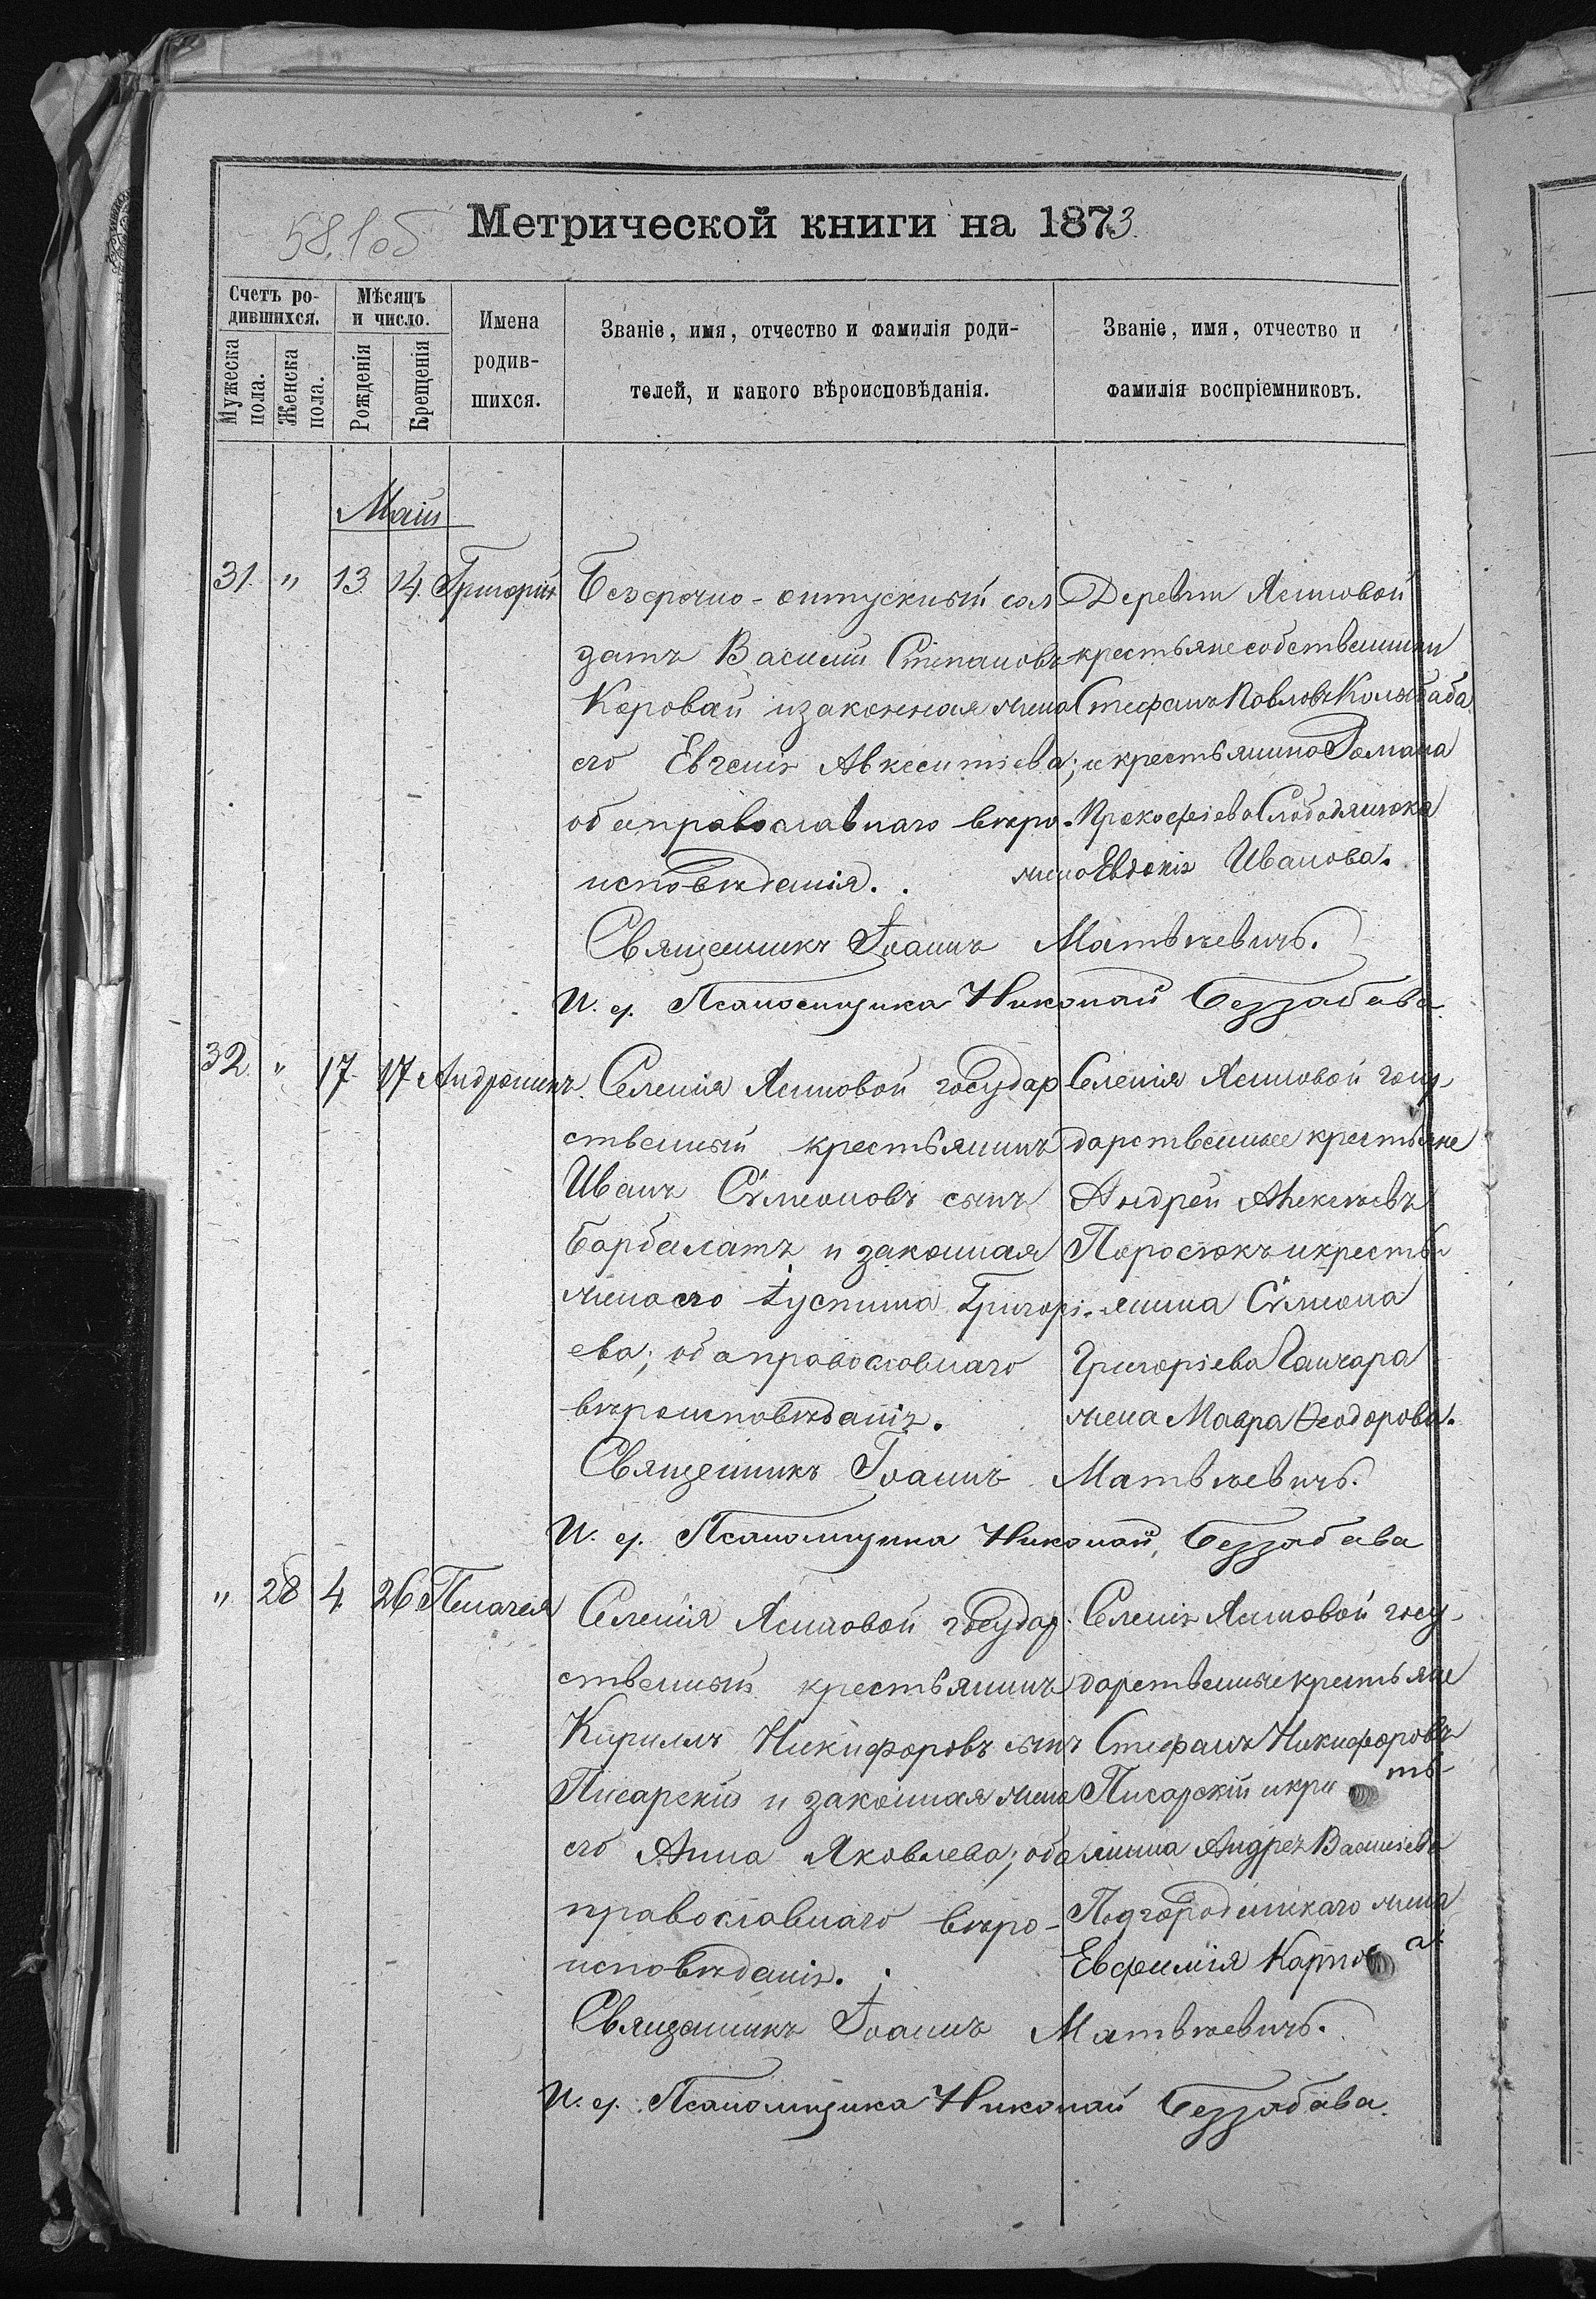 Метрической книги на 1873.
58.1об
Счетъ ро-
дившихся.
Мужеска
пола.
Женска
пола.
Мѣсяцъ
и число.
Рожденія
Крещенія
Имена
родив-
шихся.
Званіе, имя, отчество и фамилія роди-
телей, и какого вѣроисповѣданія.
Званіе, имя, отчество и
фамилія воспріемниковъ.
Май
31. " 13. 14. Григорій
Безсрочно-отпускный сол
датъ Василій Стѣпановъ
Коровай и законная жена
его Евгенія Авксентіева;
оба православнаго вѣро-
исповѣданія.
Деревни Яснповой
крестьяне собственники
Стефанъ Павловъ Колыбаба
и крестьянина Романа
Прокофіева Слободянюка
жена Евдокія Иванова.
Священникъ Іоаннъ Матвѣевичъ.
И. д. Псаломщика Николай Беззабава.
32. " 17. 17. Андроникъ.
Селенія Ясиновой государ
ственный крестьянинъ
Иванъ Сѵмеоновъ сынъ
Барбалатъ и законная
жена его Іустина Григорі-
ева; оба православнаго
вѣроисповѣданія.
Селенія Ясиновой госу-
дарственные крестьяне
Андрей Алексѣевъ
Поросюкъ и кресть-
янина Сѵмеона
Григоріева Ганчара
жена Мавра Ѳеодорова.
Священникъ Іоаннъ Матвѣевичъ.
И. д. Псаломщика Николай Беззабава
" 28 4. 26 Пелагея
Селенія Ясиновой государ-
ственный крестьянинъ
Кириллъ Никифоровъ сынъ
Писарскій и законная жена
его Анна Яковлева; оба
православнаго вѣро-
исповѣданія.
Селенія Ясиновой госу-
дарственные крестьяне
Стефанъ Никифоровъ
Писарскій и кресть-
янина Андрея Васильева
Подгородецкаго жена
Евфимія Карпова.
Священникъ Іоаннъ Матвѣевичъ.
И. д. Псаломщика Николай Беззабава.